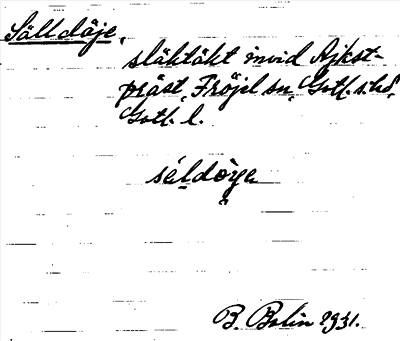 Sälldäje,
slåktäkt invid Ajkst-
präst, Fröjel sn, Gotl. s. hd,
Gotl. l.
séldòye
B. Bolin 1931.